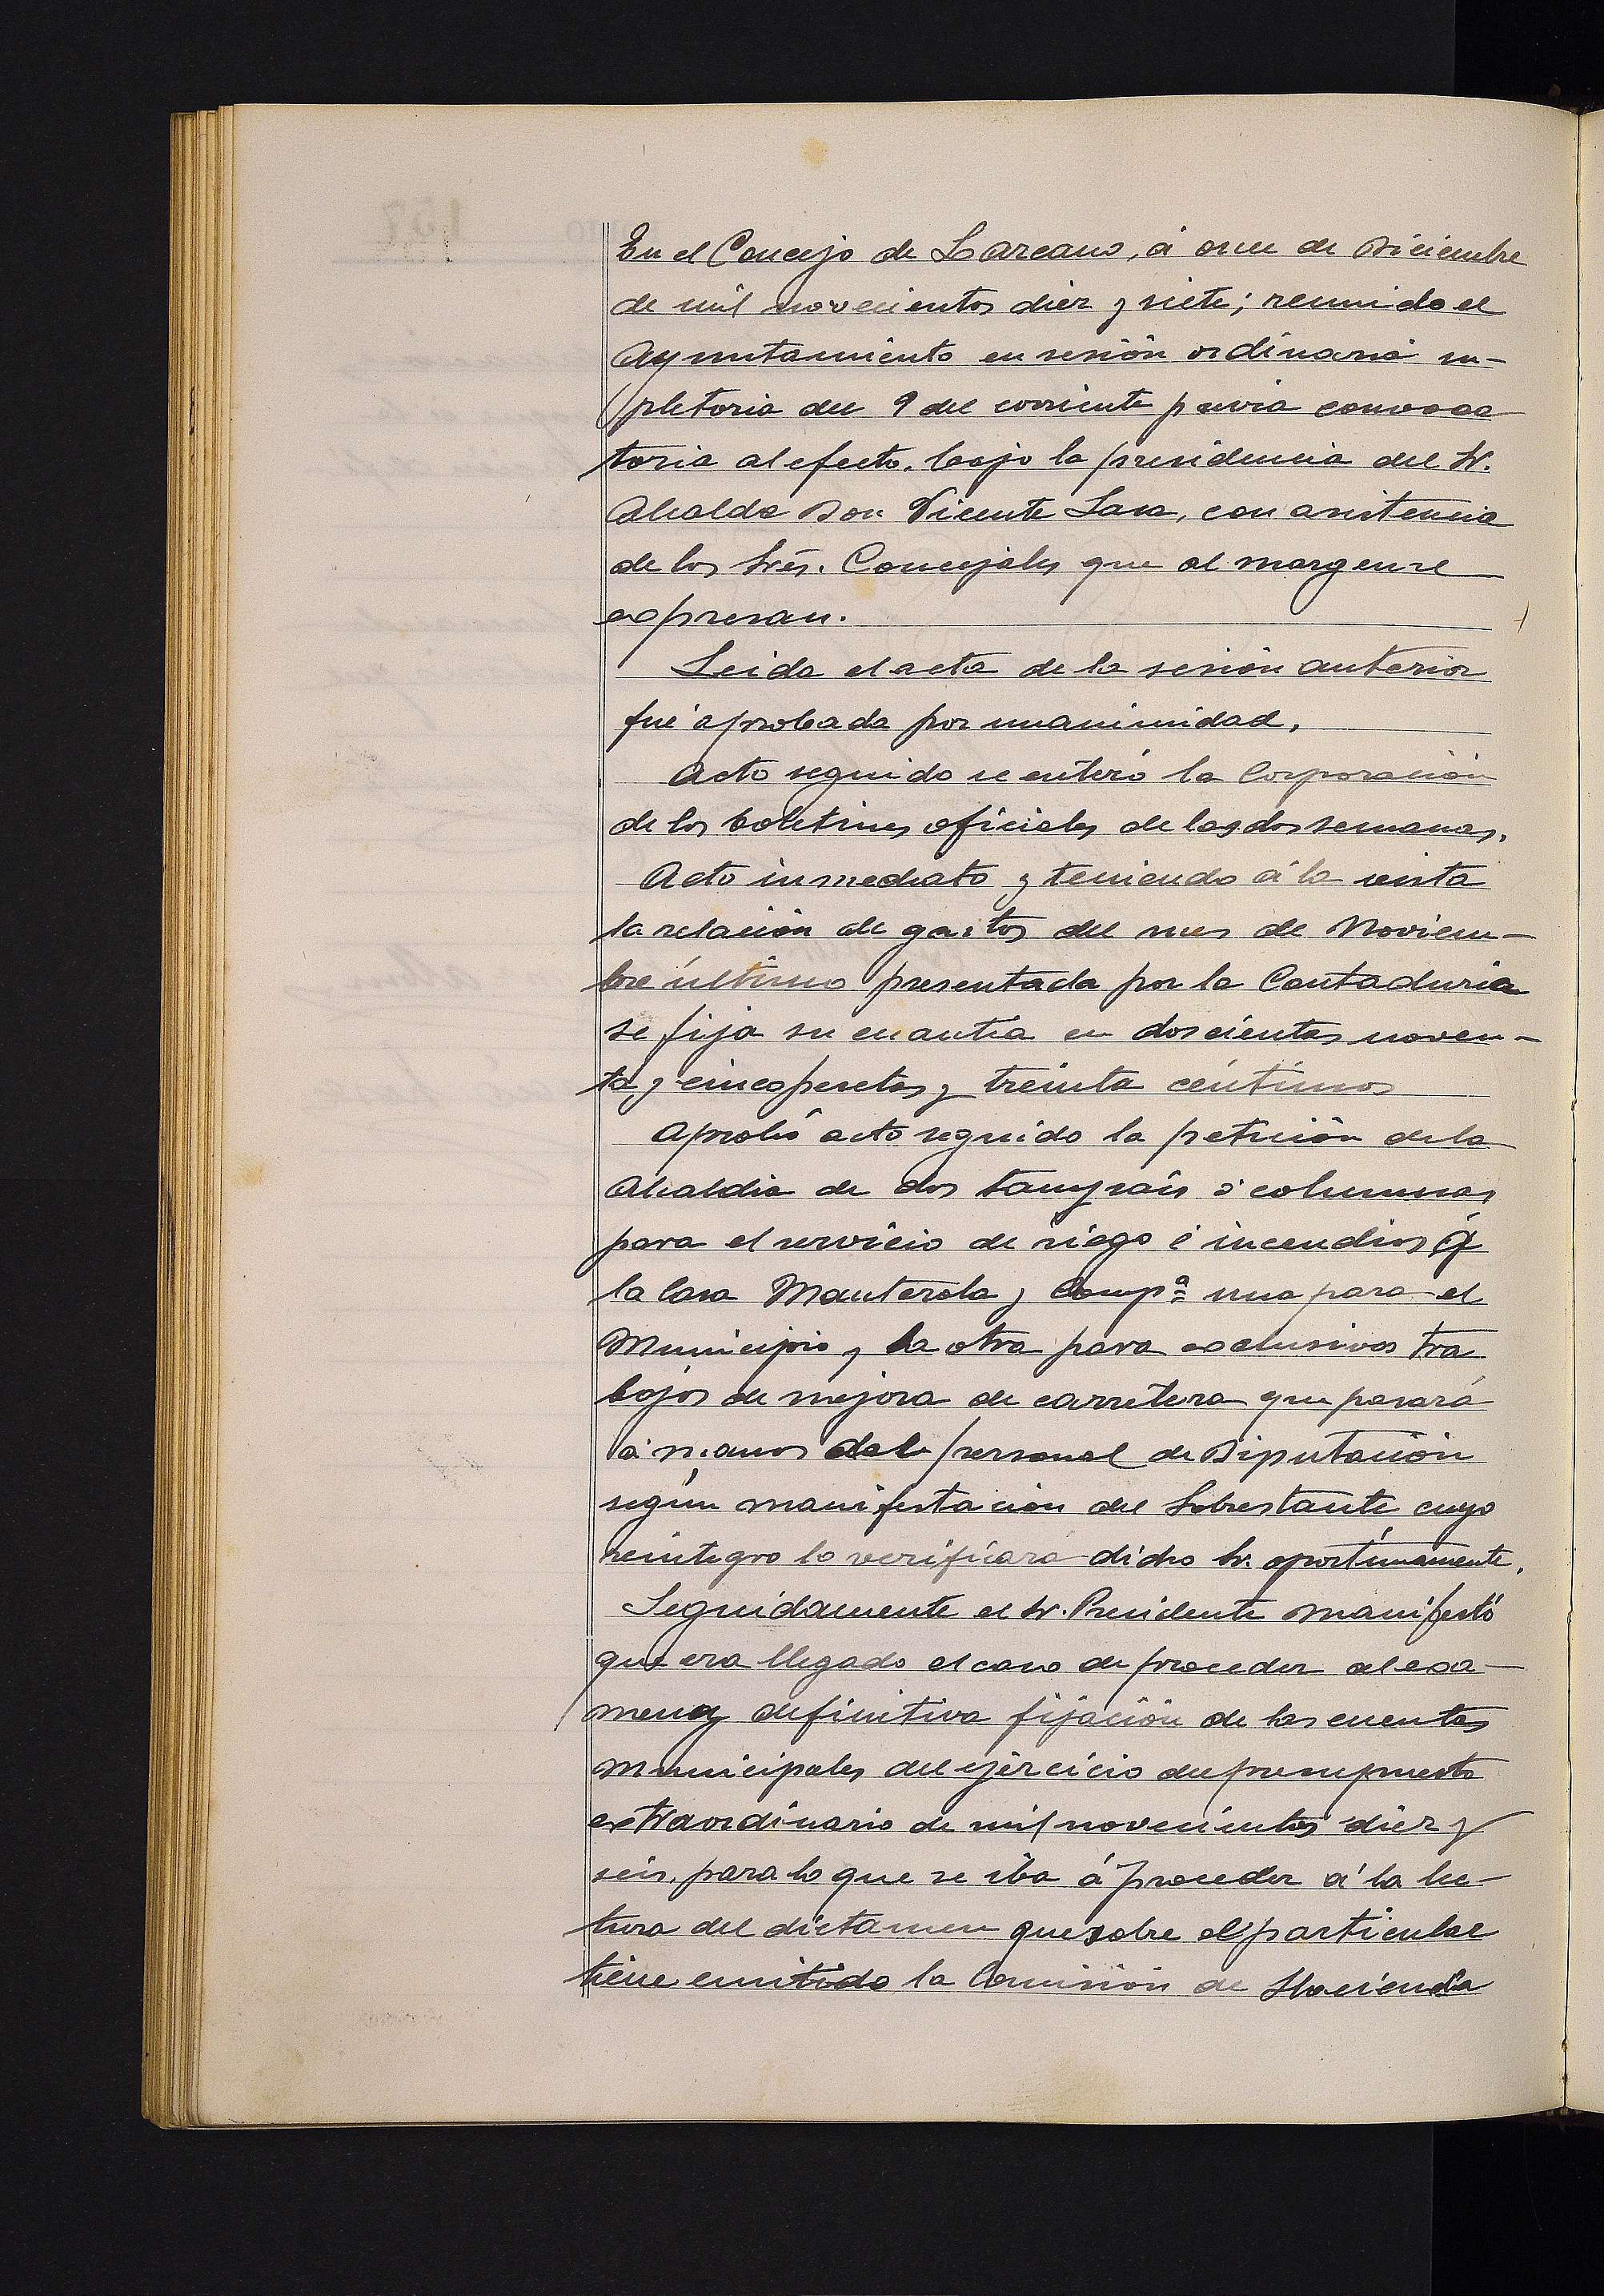 En el Concejo de Larcano, á once de Diciembre
de mil novecientos diez y siete; reunido el
Ayuntamiento en sesión ordinaria su-
pletoria del 9 del corriente previa convoca
toria al efecto, bajo la presidencia del Sr.
Alcalde Don Vicente Lasa, con asistencia
de los Srés. Concejales que al margen se
expresan.
Leida el acta de la sesión anterior
fué aprobada por unanimidad.
Acto seguido se enteró la Corporación
de los boletines oficiales de las dos semanas.
Acto inmediato y teniendo á la vista
la relación de gastos del mes de Noviem-
bre último presentada por la Contaduria
se fija su cuantia en doscientas noven-
ta y cinco pesetas y treinta céntimos
Aprobó acto seguido la petición de la
Alcaldia de dos ó columnas
para el servicio de riego é incendios á
la Casa Manterola y Compª una para el
Municipio y la otra para exclusivos tra
bajos de mejora de carretera que pasará
á manos del personal de Diputación
según manifestación del Sobrestante cuyo
reintegro lo verificará dicho Sr. oportunamente.
Seguidamente el Sr. Presidente manifestó
que era llegado el caso de proceder al exa-
men y definitiva fijación de las cuentas
municipales del ejercicio del presupuesto
extraordinario de mil novecientos diez y
seis, para lo que se iba á proceder á la lec-
tura del dictamen que sobre el particular
tiene emitido la Comisión de Hacienda